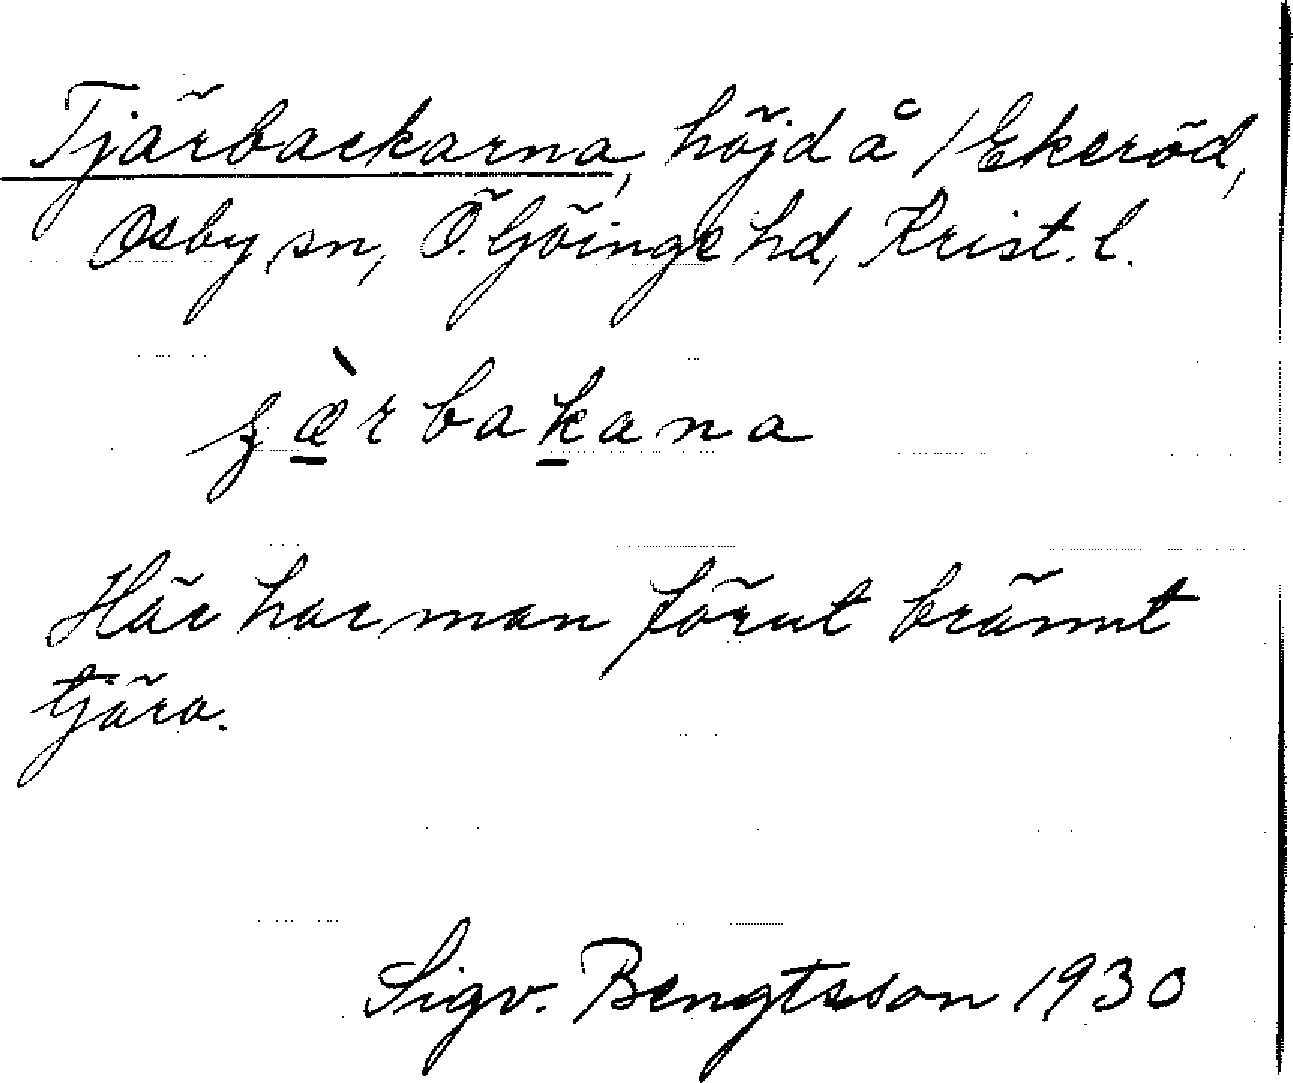 Tjärbackarna, höjd å /Ekeröd,
Osby sn, Ö. Göinge hd, Krist. l.
Här har man förut brännt
tjära.
Sigv. Bengtsson 1930